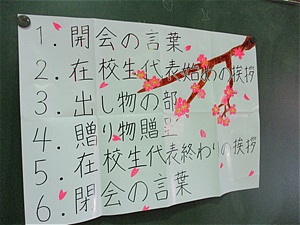 1.開会の言葉
2.在校生代表始めの挨拶
3.出し物の部
4.贈り物贈呈
5.在校生代表終わりの挨拶
6.閉会の言葉